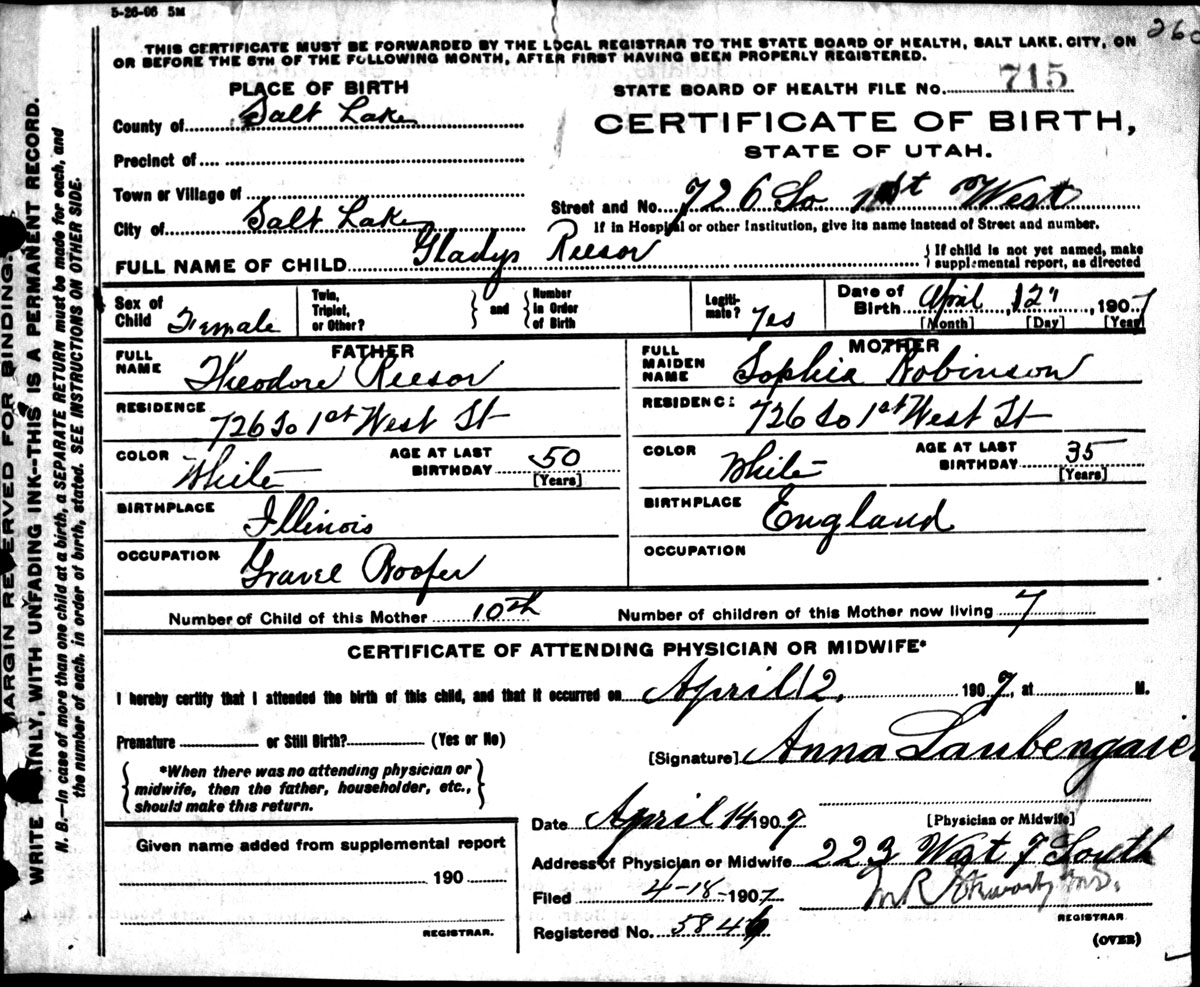 5-26-06 5M
260
THIS CERTIFICATE MUST BE FORWARDED BY THE LOCAL REGISTRAR TO THE STATE BOARD OF HEALTH, SALT LAKE CITY, ON
OR BEFORE THE 5TH OF THE FOLLOWING MONTH, AFTER FIRST HAVING BEEN PROPERLY REGISTERED.
PLACE OF BIRTH
STATE BOARD OF HEALTH FILE No. 715
County of Salt Lake
CERTIFICATE OF BIRTH,
STATE OF UTAH.
Precinct of
Town or Village of
Street and No. 726 So 1st West
City of Salt Lake
If in Hospital or other Institution, give its name instead of Street and number.
FULL NAME OF CHILD Gladys Reesor
{If child is not yet named, make
supplemental report, as directed
Sex of
Child Female
Twin,
Triplet,
or Other?
} and {
Number
in Order
of Birth
Legiti-
mate? Yes
Date of
Birth April 12, 1907
[Month] [Day] [Year]
FATHER
FULL
NAME Theodore Reesor
RESIDENCE 726 So 1st West St
COLOR White
AGE AT LAST
BIRTHDAY 50
[Years]
BIRTHPLACE Illinois
OCCUPATION Gravel Roofer
MOTHER
FULL
MAIDEN
NAME Sophia Robinson
RESIDENCE 726 So 1st West St
COLOR White
AGE AT LAST
BIRTHDAY 35
[Years]
BIRTHPLACE England
OCCUPATION
Number of Child of this Mother 10th Number of children of this Mother now living 7
CERTIFICATE OF ATTENDING PHYSICIAN OR MIDWIFE*
I hereby certify that I attended the birth of this child, and that it occurred on April 12, 1907, at M.
Premature or Still Birth? (Yes or No)
[Signature] Anna Laubengaier
{*When there was no attending physician or
midwife, then the father, householder, etc.,
should make this return.}
[Physician or Midwife]
Date April 14 1907
Address of Physician or Midwife 223 West 7 South
Filed 4-18-1907
REGISTRAR
Registered No. 584
(OVER)
Given name added from supplemental report
190
REGISTRAR.
MARGIN RESERVED FOR BINDING.
WRITE PLAINLY, WITH UNFADING INK--THIS IS A PERMANENT RECORD.
N. B.—In case of more than one child at a birth, a SEPARATE RETURN must be made for each, and
the number of each, in order of birth, stated. SEE INSTRUCTIONS ON OTHER SIDE.